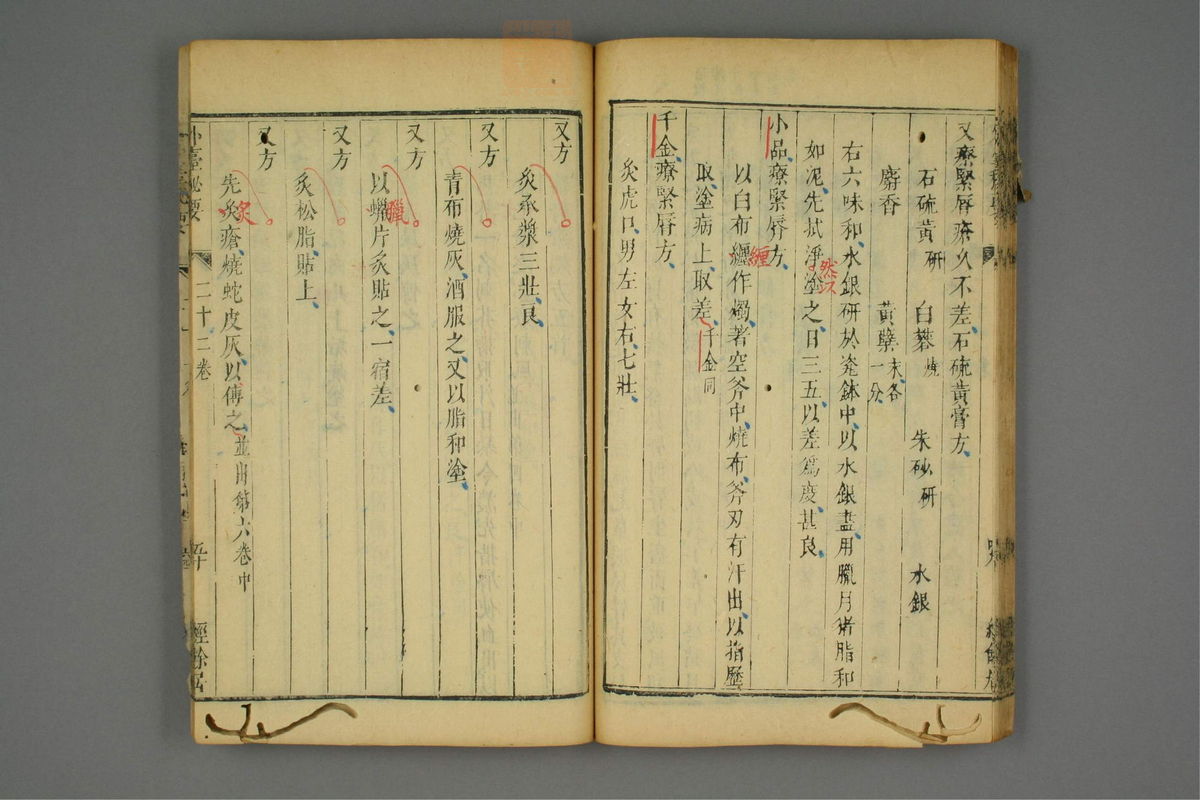 又療緊唇瘡久不差石硫黃膏方
石硫黃研 白蓉燒 朱砂研 水銀
麝香 黃蘗末各一分
右六味和水銀研於瓷鉢中以水銀盡用臘月猪脂和
如泥先拭淨塗之日三五以差爲度甚良
然後
小品療緊唇方
以白布纏作燭著空斧中燒布斧刃有汗出以指歷
纏
取塗病上取差千金同
千金療緊唇方
灸虎口男左女右七壯
又方
灸承漿三壯良
又方
青布燒灰酒服之又以脂和塗
又方
以蠟片炙貼之一宿差
臘
又方
炙松脂貼上
又方
先灸瘡燒蛇皮灰以傅之並出第六卷中
炙
外臺秘要 二十二卷 五十 經餘居